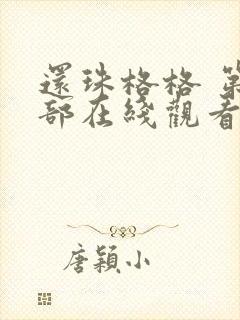 還珠格格 第
部在綫觀看
唐穎小